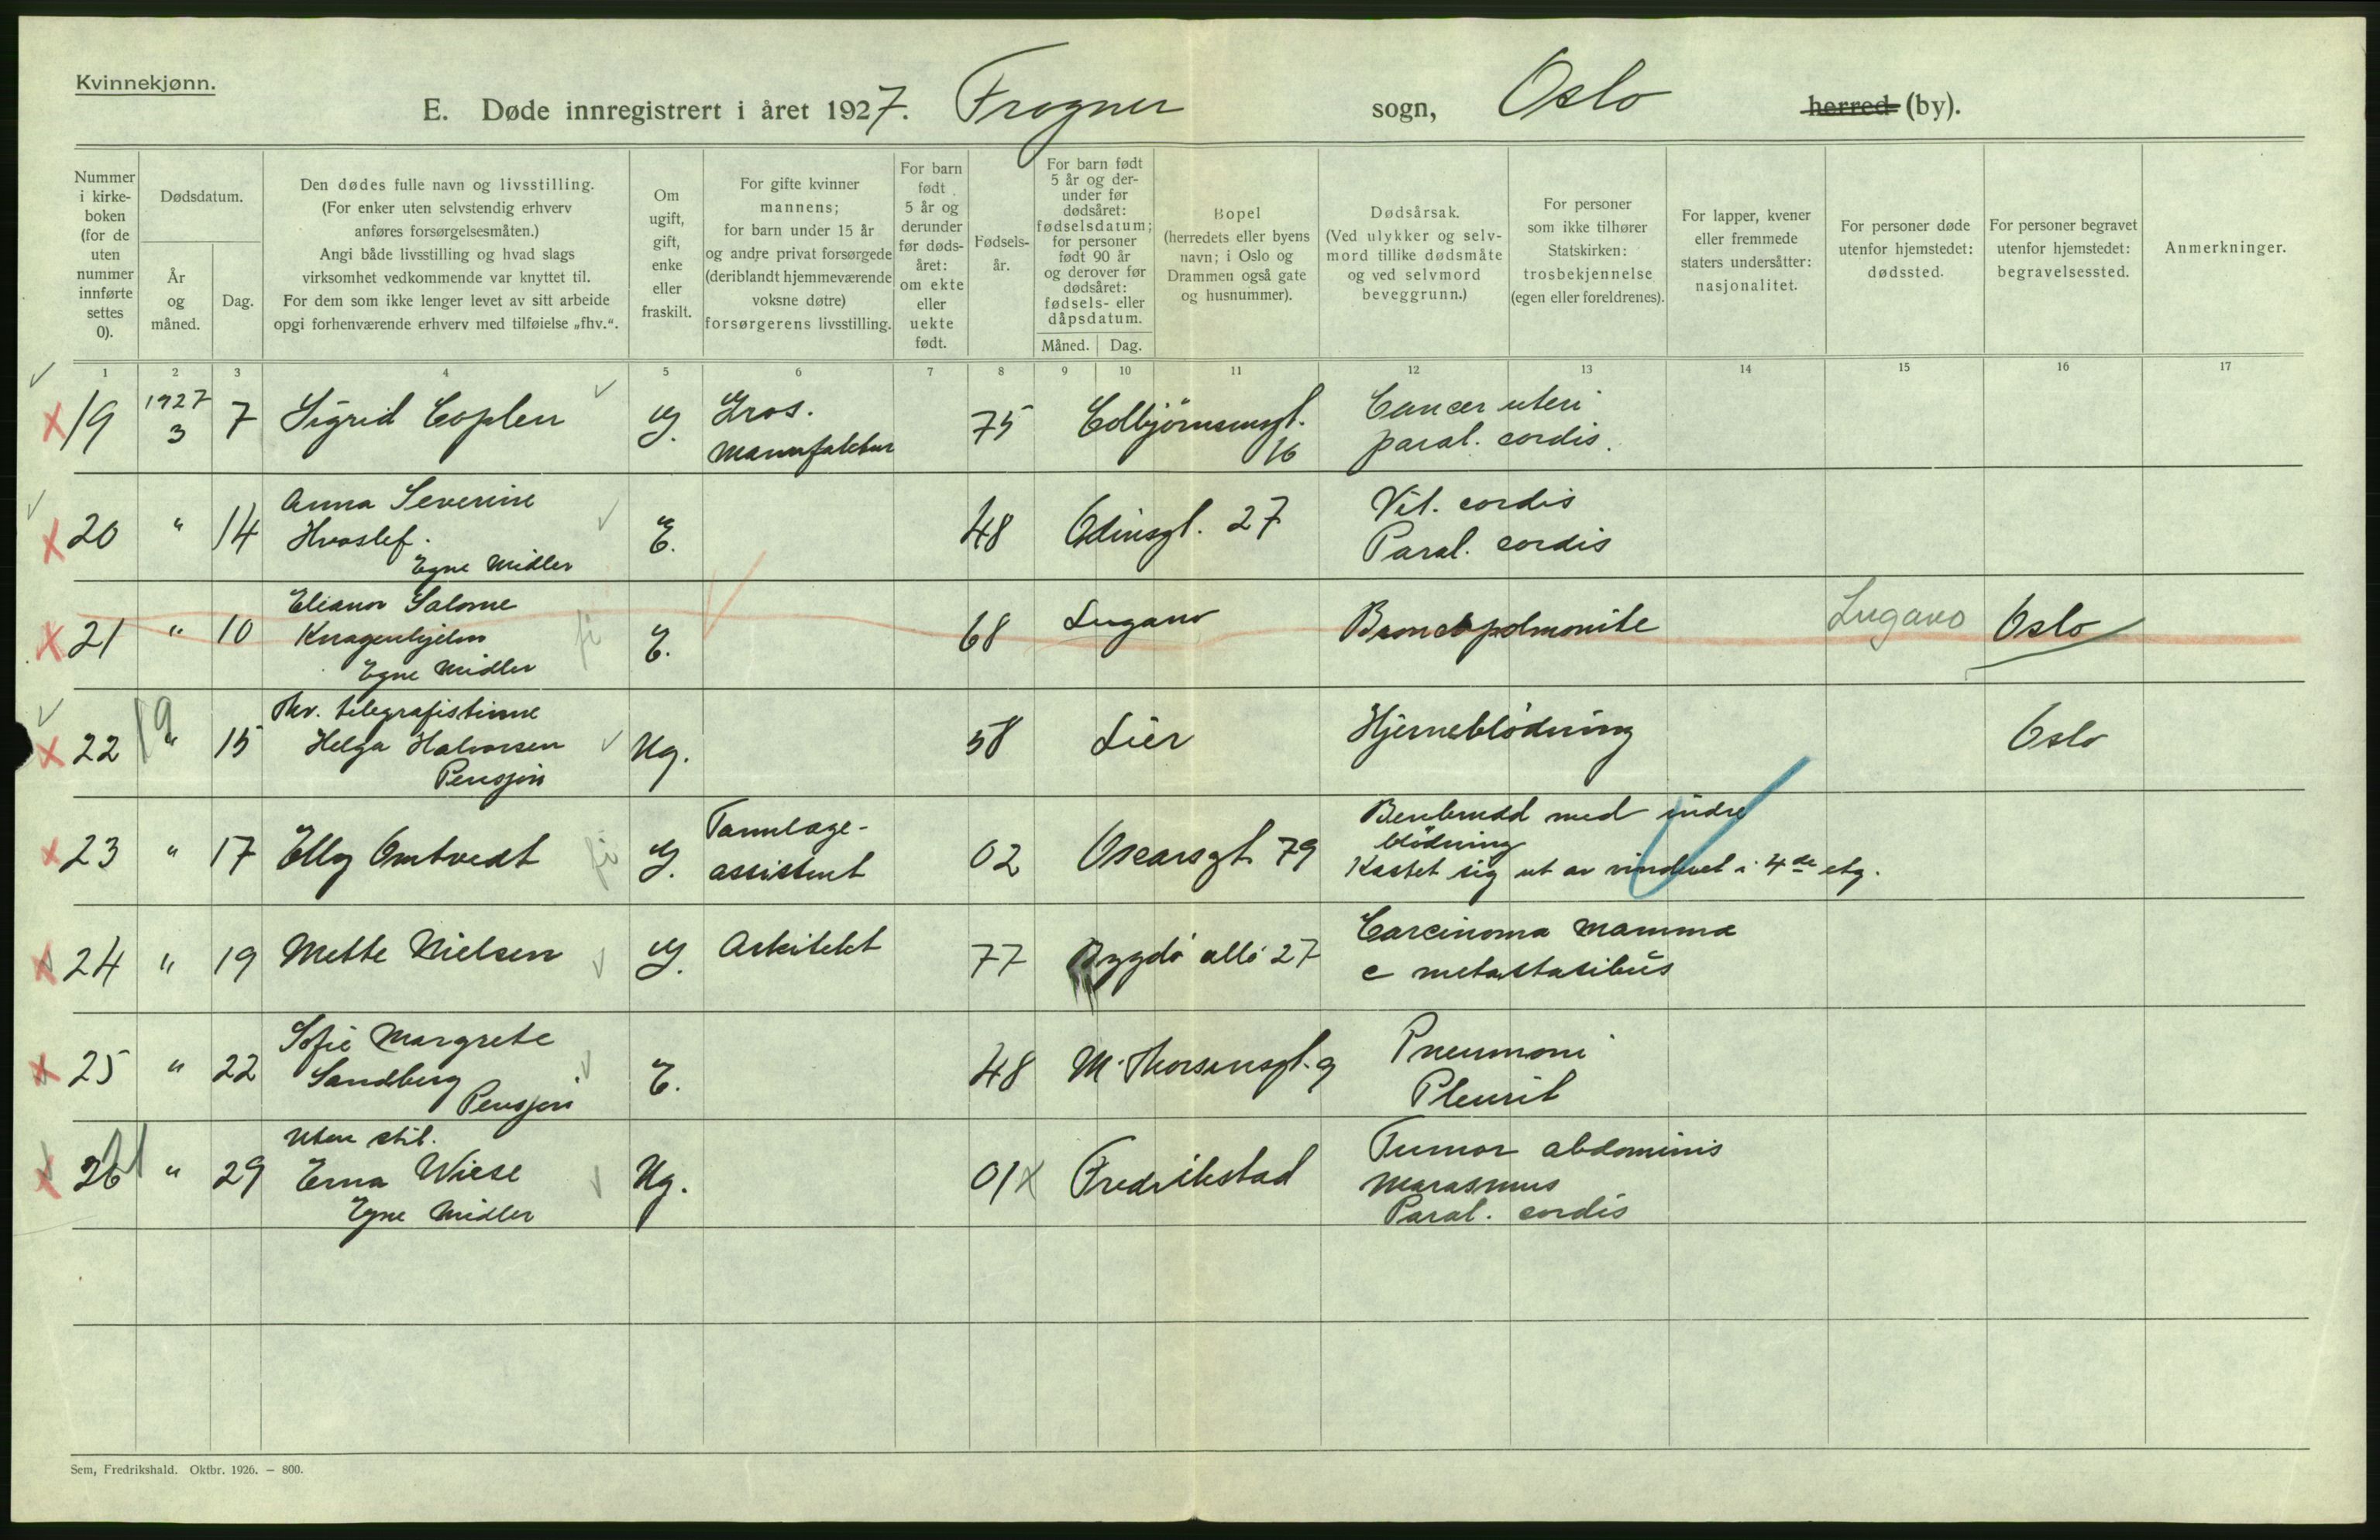 Kvinnekjønn.
E. Døde innregistrert i året 1927. Frogner sogn, Oslo herred (by).
Nummer i kirkeboken (for de uten nummer innførte settes 0).
Dødsdatum.
År og måned.
Dag.
Den dødes fulle navn og livsstilling.
(For enker uten selvstendig erhverv
anføres forsørgelsesmåten.)
Angi både livsstilling og hvad slags
virksomhet vedkommende var knyttet til.
For dem som ikke lenger levet av sitt arbeide
opgi forhenværende erhverv med tilføielse „fhv.“.
Om
ugift,
gift,
enke
eller
fraskilt.
For gifte kvinner
mannens;
for barn under 15 år
og andre privat forsørgede
(deriblandt hjemmeværende
voksne døtre)
forsørgerens livsstilling.
For barn
født
5 år og
derunder
før døds-
året:
om ekte
eller
uekte
født.
Fødsels-
år.
For barn født
5 år og der-
under før
dødsåret:
fødselsdatum;
for personer
født 90 år
og derover før
dødsåret:
fødsels- eller
dåpsdatum.
Måned.
Dag.
Bopel
(herredets eller byens
navn; i Oslo og
Drammen også gate
og husnummer).
Dødsårsak.
(Ved ulykker og selv-
mord tillike dødsmåte
og ved selvmord
beveggrunn.)
For personer
som ikke tilhører
Statskirken:
trosbekjennelse
(egen eller foreldrenes).
For lapper, kvener
eller fremmede
staters undersåtter:
nasjonalitet.
For personer døde
utenfor hjemstedet:
dødssted.
For personer begravet
utenfor hjemstedet:
begravelsessted.
Anmerkninger.
1 2 3 4 5 6 7 8 9 10 11 12 13 14 15 16 17
19 1927 3 7 Sigrid Coplen g. Gros. 75 Colbjörnsensgt. Cancer uteri
Mannfaktur 16 paral. cordis.
20 " 14 Anna Severine
Hvoslef. E. 48 Odinsgt. 27 Vit. cordis
Egne Midler Paral. cordis
21 " 10 Elianor Salome
Knagenhjelm E. 68 Lugano Broncopolmonite Lugano Oslo
Egne Midler
22 " 15 Fhv. telegrafistinne
Helga Halvorsen Ug. 58 Lier Hjerneblödning Oslo
Pensjon
23 " 17 Elly Omtvedt g. Tannlæge- 02 Oscarsgt. 79 Benbrudd med indre
assistent blödning
Kastet sig ut av vinduet i 4de etg.
24 " 19 Mette Nielsen g. Arkitekt 77 Bygdö allé 27 Carcinoma Mamma
c metastasibus
25 " 22 Sofie Margrete
Sandberg E. 48 M. Thorsensgt. 9 Pneumoni
Pensjon Pleurit
26 " 29 Uten stil.
Erna Wiese Ug. 01 Fredrikstad Tumor abdominis
Egne Midler Marasmus
Paral. cordis
Sem, Fredrikshald. Oktbr. 1926. – 800.